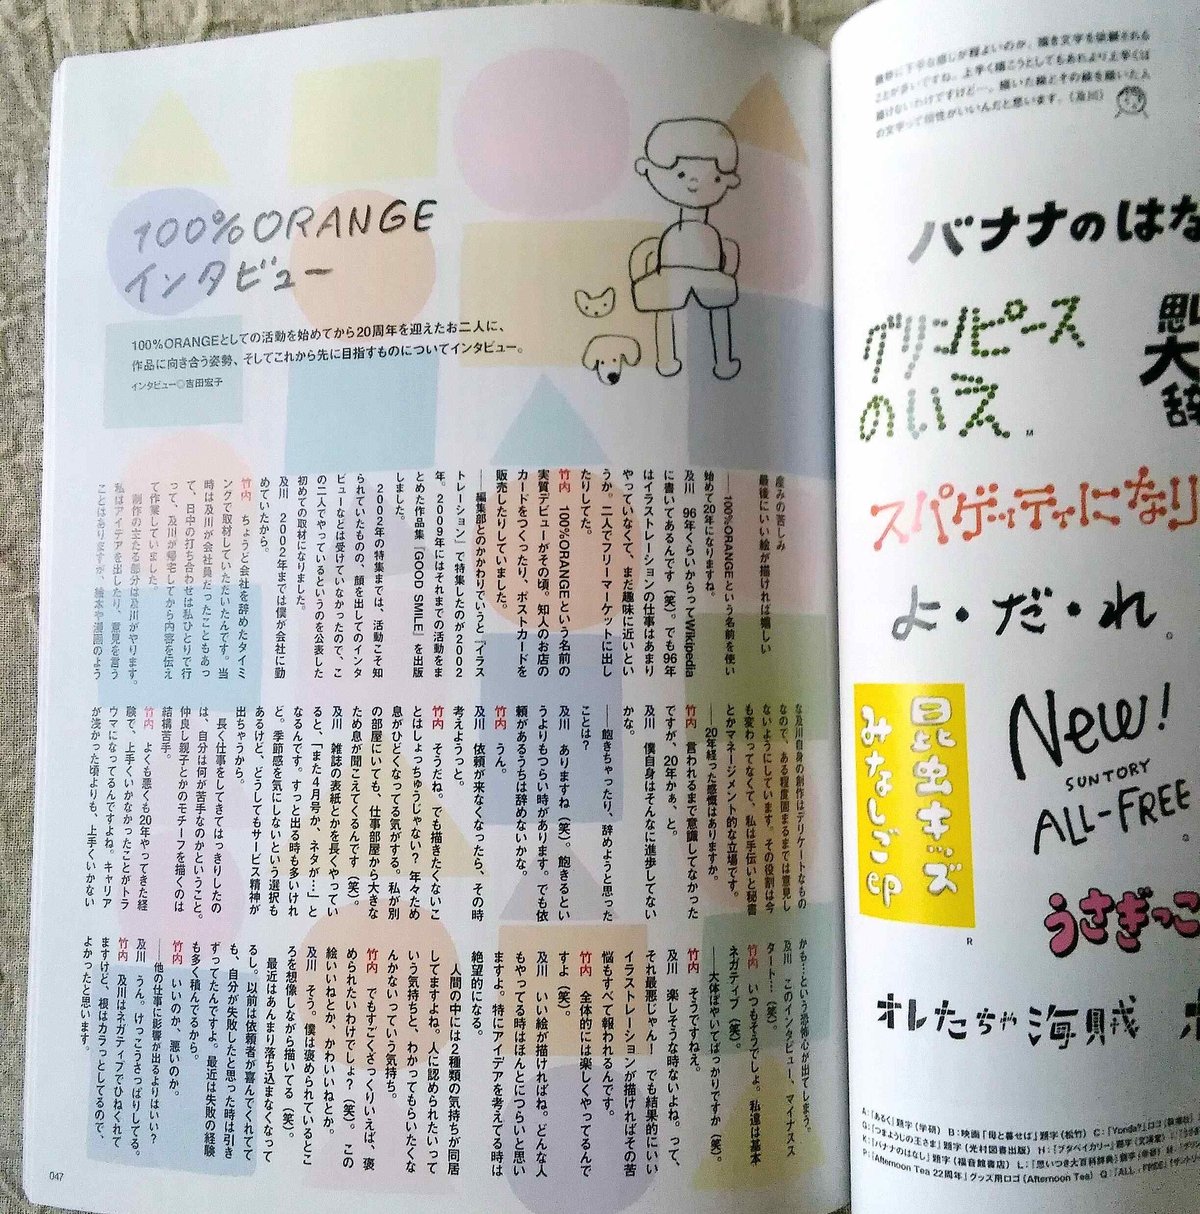 100%ORANGE
インタビュー
100%ORANGEとしての活動を始めてから20周年を迎えたお二人に、
作品に向き合う姿勢、そしてこれから先に目指すものについてインタビュー。
インタビュー◎吉田宏子
産みの苦しみ
最後にいい絵が描ければ嬉しい
――100%ORANGEという名前を使い
始めて20年になりますね。
及川　96年くらいからってWikipedia
に書いてあるんです（笑）。でも96年
はイラストレーションの仕事はあまり
やっていなくて、まだ趣味に近いとい
うか。二人でフリーマーケットに出し
たりしてた。
竹内　100%ORANGEという名前の
実質デビューがその頃。知人のお店の
カードをつくったり、ポストカードを
販売したりしていました。
――編集部とのかかわりでいうと『イラス
トレーション』で特集したのが2002
年。2009年にはそれまでの活動をま
とめた作品集『GOOD SMILE』を出版
しました。
2002年の特集までは、活動こそ知
られていたものの、顔を出してのインタ
ビューなどは受けていなかったので、こ
の二人でやっているというのを公表した
初めての取材になりました。
及川　2002年までは僕が会社に勤
めていたから。
竹内　ちょうど会社を辞めたタイミ
ングで取材していただいたんです。当
時は及川が会社員だったこともあっ
て、日中の打ち合わせは私ひとりで行
って、及川が帰宅してから内容を伝え
て作業していました。
制作の主たる部分は及川がやります。
私はアイデアを出したり、意見を言う
ことはありますが、絵本や漫画のよう
な及川自身の創作はデリケートなもの
なので、ある程度固まるまでは意見し
ないようにしています。その役割は今
も変わってなくて、私は手伝いと秘書
とかマネージメント的な立場です。
――20年経った感慨はありますか。
竹内　言われるまで意識してなかった
ですが、20年かぁ、と。
及川　僕自身はそんなに進歩してない
かな。
――飽きちゃったり、辞めようと思った
ことは？
及川　ありますね（笑）。飽きるとい
うよりもつらい時があります。でも依
頼があるうちは辞めないかな。
竹内　うん。
及川　依頼が来なくなったら、その時
考えようっと。
竹内　そうだね。でも描きたくないこ
とはしょっちゅうじゃない？ 年々ため
息がひどくなってる気がする。私が別
の部屋にいても、仕事部屋から大きな
ため息が聞こえてくるんです（笑）。
及川　雑誌の表紙とかを長くやってい
ると、「また4月号か、ネタが…」と
なるんです。すっと出る時も多いけれ
ど。季節感を気にしないという選択も
あるけど、どうしてもサービス精神が
出ちゃうから。
長く仕事をしてきてはっきりしたの
は、自分は何が苦手なのかということ。
仲良し親子とかのモチーフを描くのは
結構苦手。
竹内　よくも悪くも20年やってきた経
験で、上手くいかなかったことがトラ
ウマになってるんですよね。キャリア
が浅かった頃よりも、上手くいかない
かも…という恐怖心が出てしまう。
及川　このインタビュー、マイナスス
タート…（笑）。
竹内　いつもそうでしょ。私達は基本
ネガティブ（笑）。
――大体ぼやいてばっかりですか（笑）。
竹内　そうですねぇ。
及川　楽しそうな時ないよね。って、
それ最悪じゃん！ でも結果的にいい
イラストレーションが描ければその苦
悩もすべて報われるんです。
竹内　全体的には楽しくやってるんで
すよ（笑）。
及川　いい絵が描ければね。どんな人
もやってる時はほんとにつらいと思い
ますよ。特にアイデアを考えてる時は
絶望的になる。
人間の中には2種類の気持ちが同居
してますよね。人に認められたいって
いう気持ちと、わかってもらいたくな
んかないっていう気持ち。
竹内　でもすごくざっくりいえば、褒
められたいわけでしょ？（笑）。この
絵いいねとか、かわいいねとか。
及川　そう。僕は褒められているとこ
ろを想像しながら描いてる（笑）。
最近はあんまり落ち込まなくなって
るし。以前は依頼者が喜んでくれてて
も、自分が失敗したと思った時は引き
ずってたんですよ。最近は失敗の経験
も多く積んでるから。
竹内　いいのか、悪いのか。
――他の仕事に影響が出るよりはいい？
及川　うん。けっこうさっぱりしてる。
竹内　及川はネガティブでひねくれて
ますけど、根はカラっとしてるので、
よかったと思います。
047
ことが多いですね。上手く描こうとしてもあれより上手くは
描けないわけですけど…。描いた絵とその絵を描いた人
の文字って相性がいいんだと思います。（及川）
バナナのはな
グリンピース
のいえ
M
大
辞
スパゲッティになり
よ・だ・れ
昆虫キッズ
みなしごep
R
New!
SUNTORY
ALL-FREE
うさぎっこ
オレたちゃ海賊
A：「あるく」題字（学研） B：映画「母と暮せば」題字（松竹） C：「Yonda?」ロゴ
G：「つまようじの王さま」題字（光村図書出版） H：「ブタベイカリー」題字（文溪堂）
K：「バナナのはなし」題字（福音館書店） L：「思いつき大百科辞典」題字（学研）
P：「Afternoon Tea 22周年」グッズ用ロゴ（Afternoon Tea） Q：「ALL-FREE」